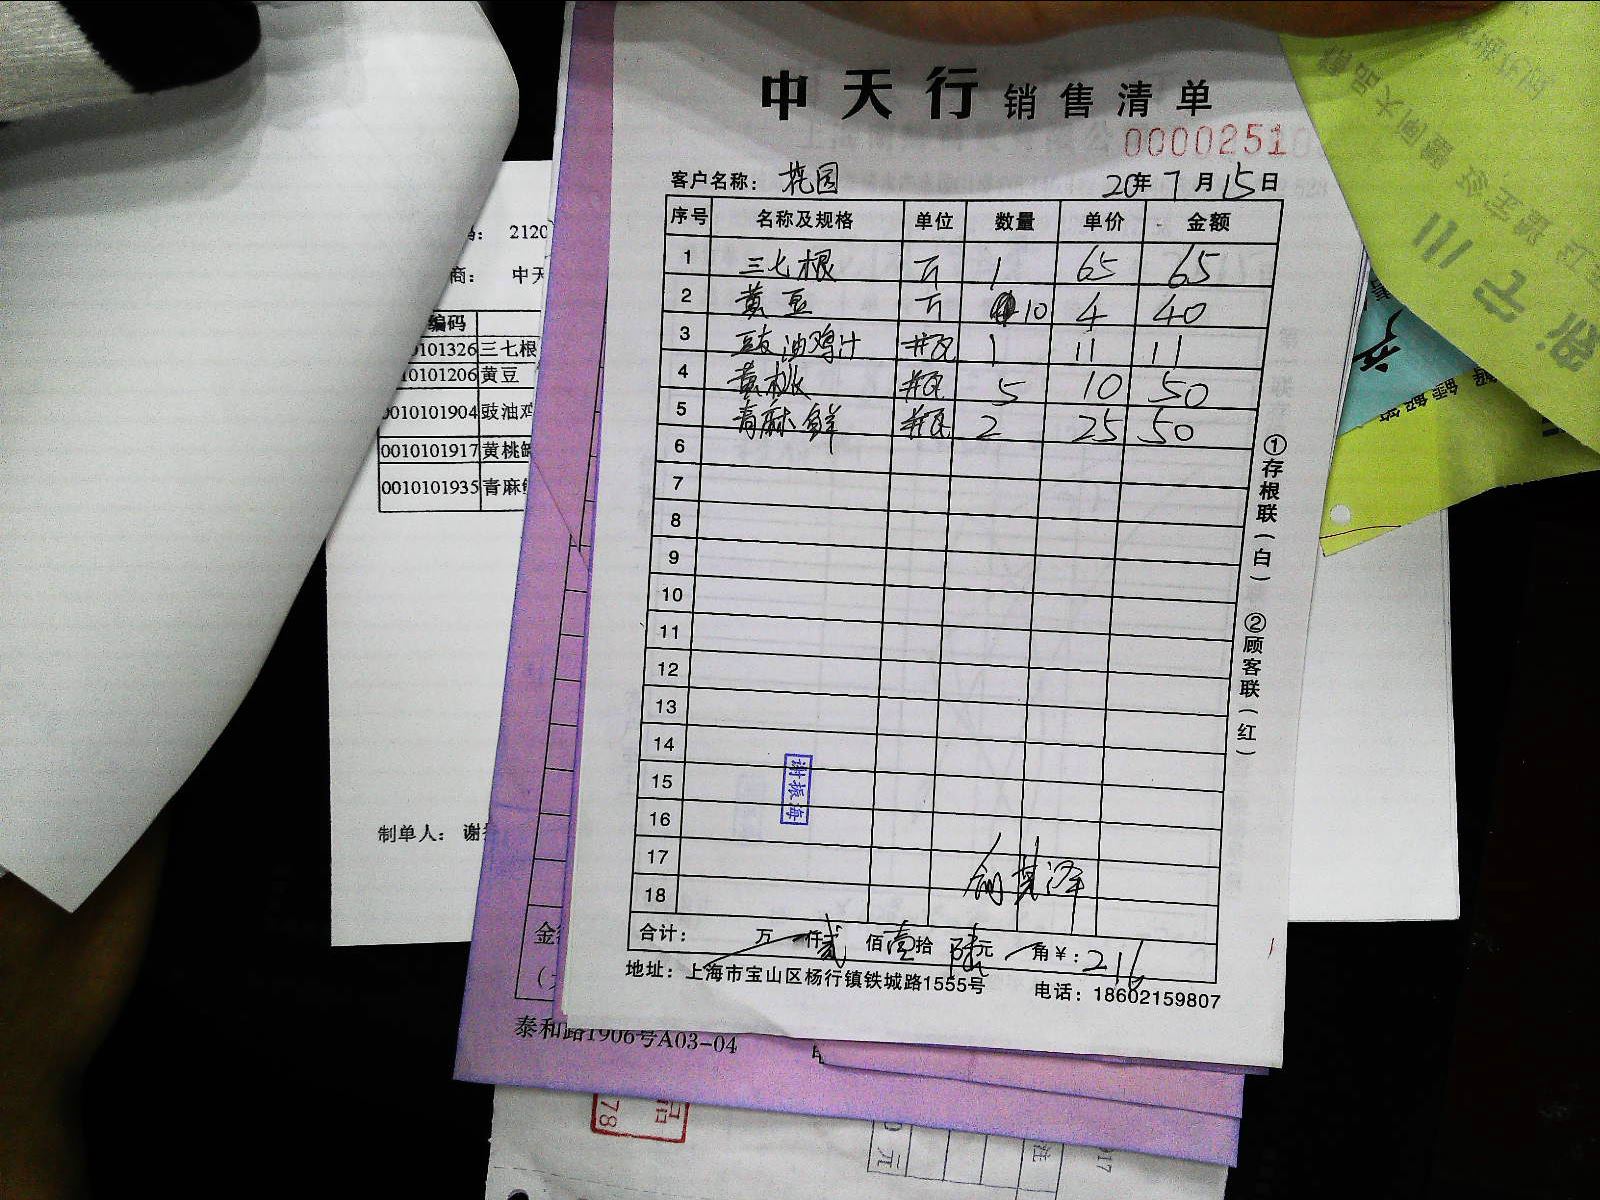 中天行 销售清单
0000251
客户名称: 花园 20年 7月15日
序号 名称及规格 单位 数量 单价 金额
1 三七根 斤 1 65 65
2 黄豆 斤 10 4 40
3 豉油鸡汁 瓶 1 11 11
4 黄桃 瓶 5 10 50
5 青麻鲜 瓶 2 25 50
6
7
8
9
10
11
12
13
14
15
16
17
18
谢振海
合计: 万 仟 贰佰 壹拾 陆元 角 ¥: 216
地址: 上海市宝山区杨行镇铁城路1555号 电话: 18602159807
①存根联(白) ②顾客联(红)
2120
商: 中天
编码
0101326 三七根
10101206 黄豆
0010101904 豉油鸡
0010101917 黄桃
0010101935 青麻
制单人: 谢
泰和路1906号A03-04
78
元
注